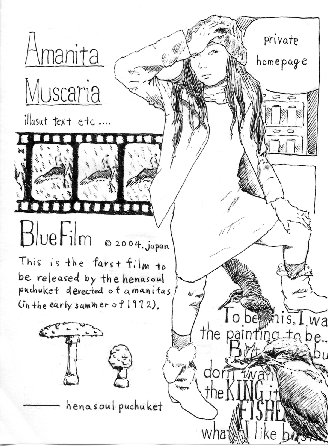 Amanita
Muscaria
illust text etc ....
private
homepage
Blue Film © 2004. japan
This is the farst film to
be released by the henasoul
puchuket derected of amanitas
(in the early summer of 1972).
henasoul puchuket
To be this. I wa
the painting to be...
But bu
don't want
the KING it
FISHE
what I like bu